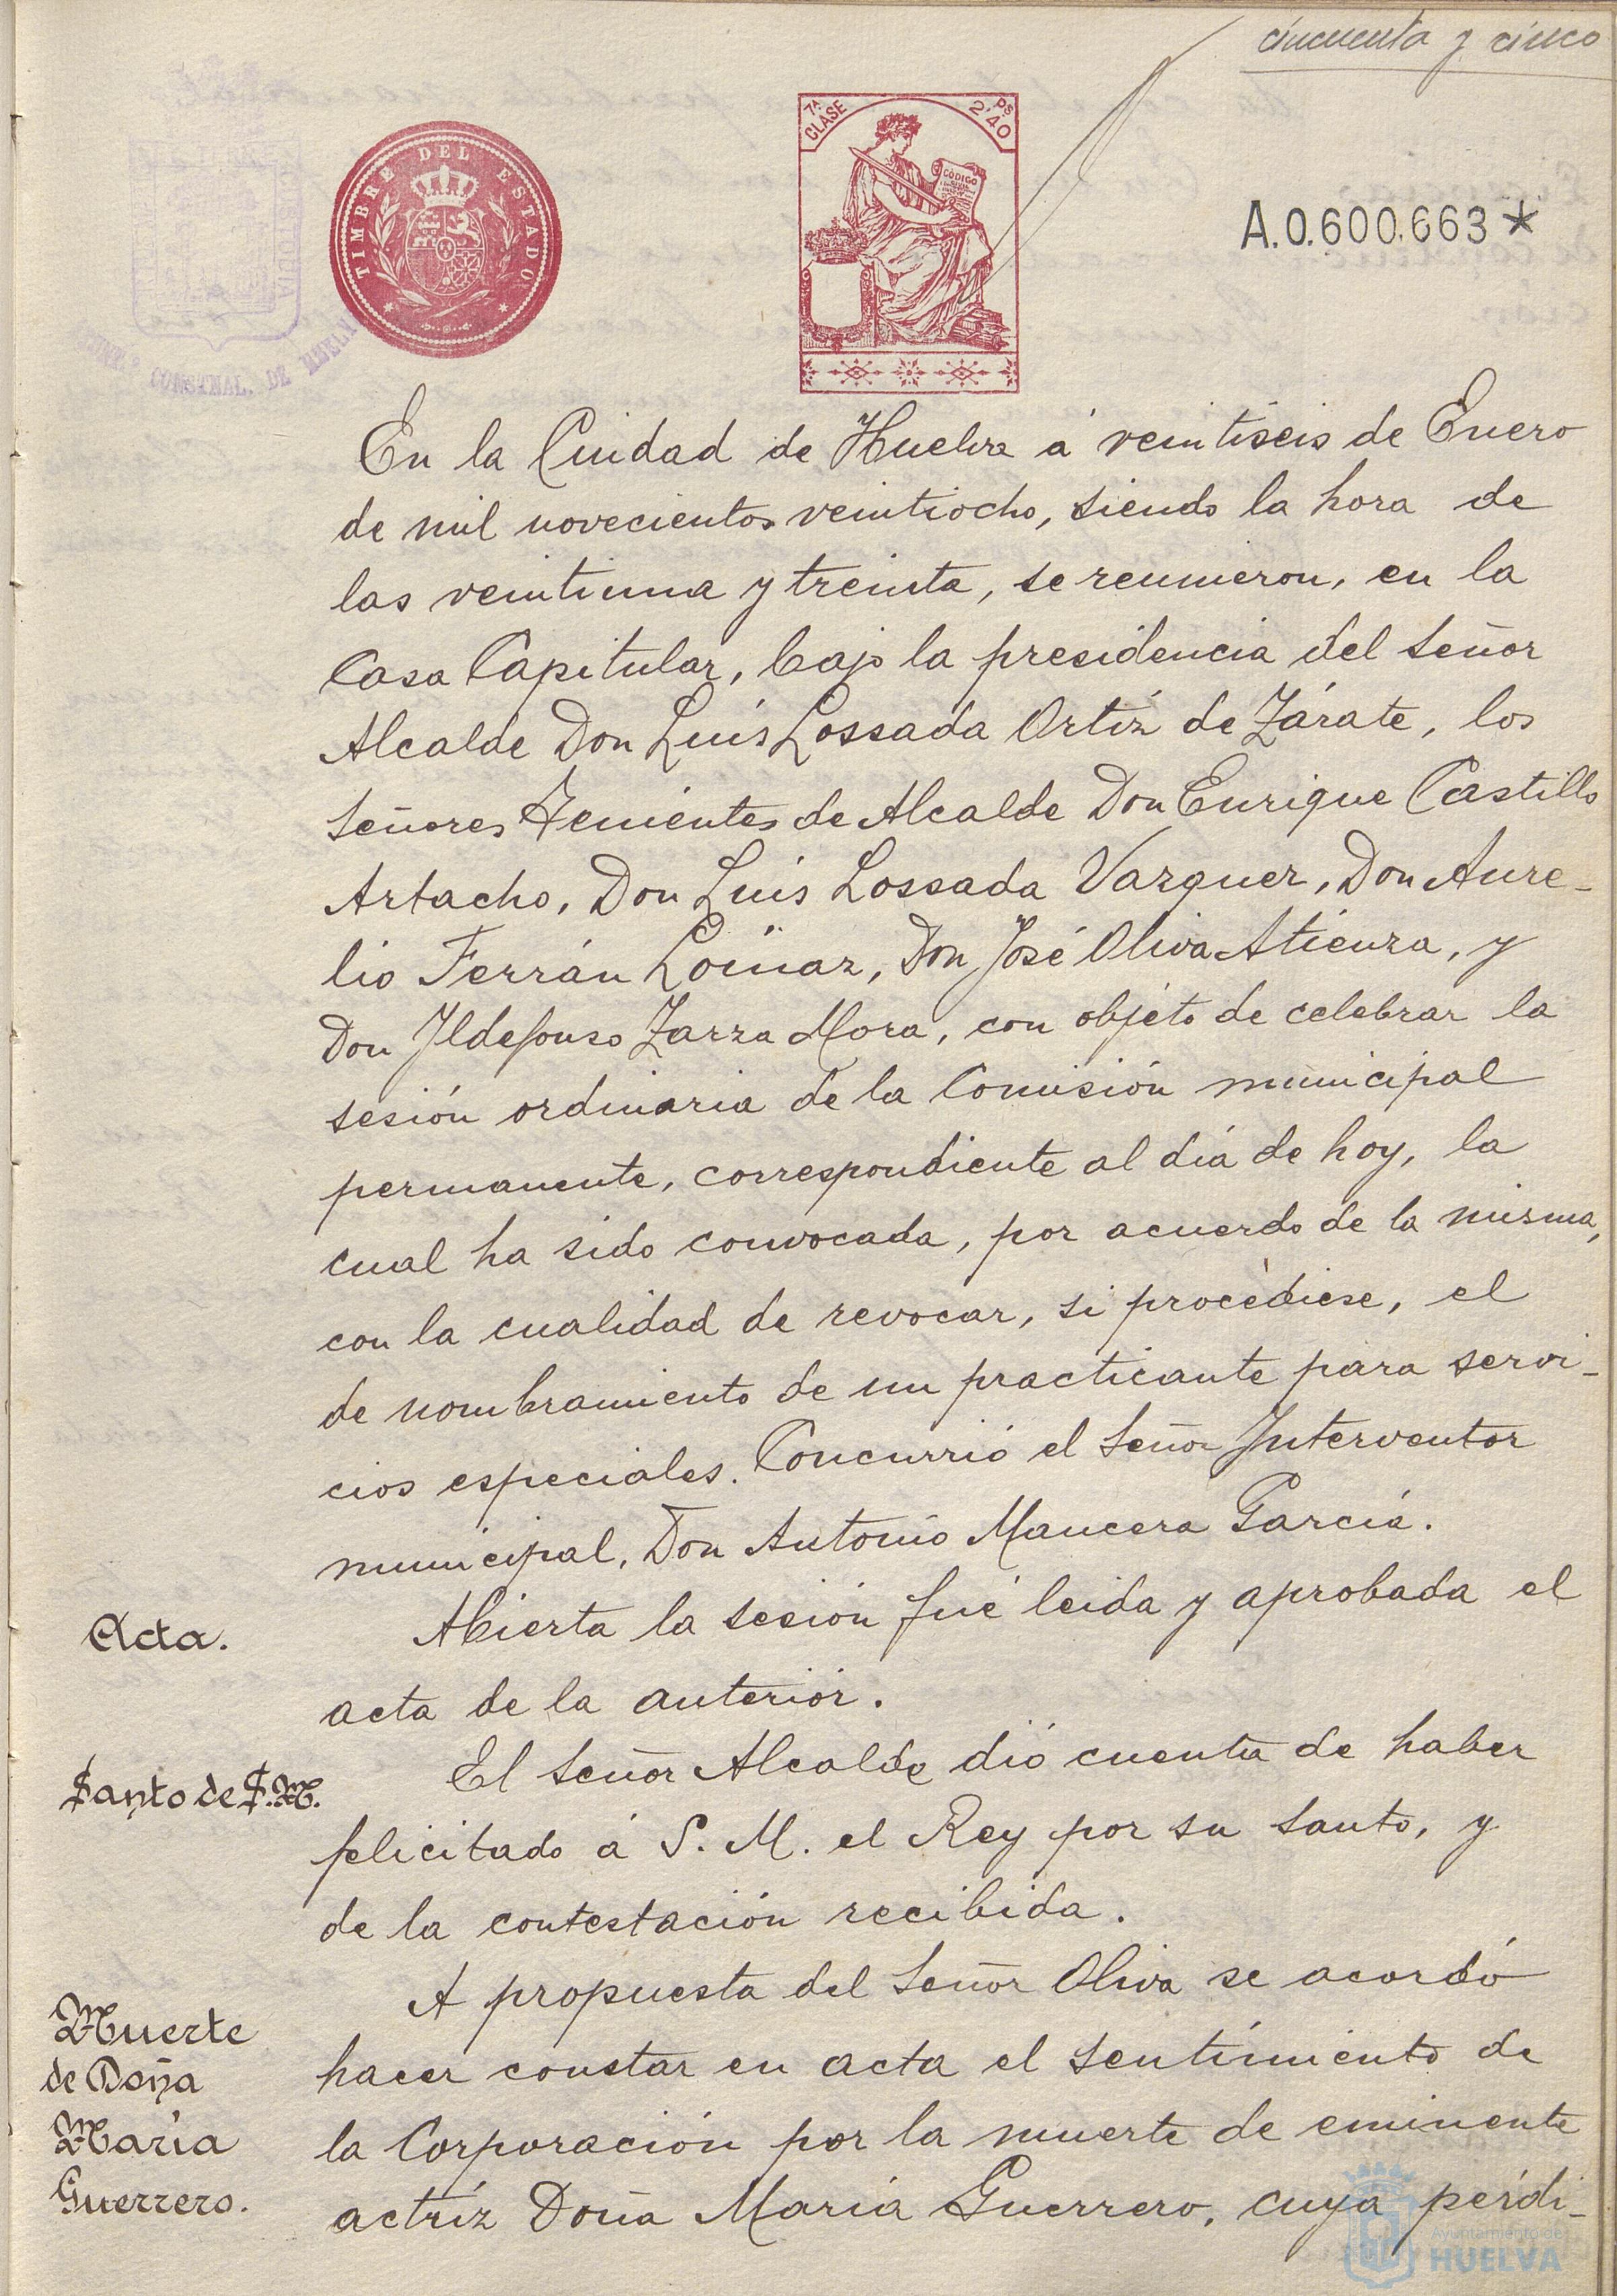 cincuenta y cinco
TIMBRE DEL ESTADO
7ª CLASE
2'40 Ps
CODIGO
A.0.600.663*
CONSTNAL. DE HUELVA
En la Ciudad de Huelva á veintiseis de Enero
de mil novecientos veintiocho, siendo la hora de
las veintiuna y treinta, se reunieron, en la
Casa Capitular, bajo la presidencia del señor
Alcalde Don Luis Lossada Ortiz de Zárate, los
señores Tenientes de Alcalde Don Enrique Castillo
Artacho, Don Luis Lossada Vazquez, Don Aure-
lio Ferrán Loinaz, Don José Oliva Atienza, y
Don Ildefonso Zarza Mora, con objeto de celebrar la
sesión ordinaria de la Comisión municipal
permanente, correspondiente al día de hoy, la
cual ha sido convocada, por acuerdo de la misma,
con la cualidad de revocar, si procediese, el
de nombramiento de un practicante para servi-
cios especiales. Concurrió el señor Interventor
municipal, Don Antonio Mancera García.
Acta.
Abierta la sesión fué leida y aprobada el
acta de la anterior.
Santo de S.M.
El señor Alcalde dió cuenta de haber
felicitado á S. M. el Rey por su santo, y
de la contestación recibida.
Muerte
de Doña
María
Guerrero.
A propuesta del señor Oliva se acordó
hacer constar en acta el sentimiento de
la Corporación por la muerte de eminente
actríz Doña María Guerrero, cuya pérdi-
Ayuntamiento de
HUELVA